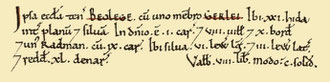 Ipsa eccla ten BEOLEGE. cũ uno mẽbro GERLEI. Ibi .xxi. hidæ
int planũ 7 siluã. In dnio. ẽ .i. car. 7 .viii. uitti 7 .x. bord
7 un Radman. cũ .ix. car. Ibi silua .vi. leuu lg. 7 .iii. leuu lat.
7 redd .xl. denar. Valb .viii. lib. modo .c. solid.